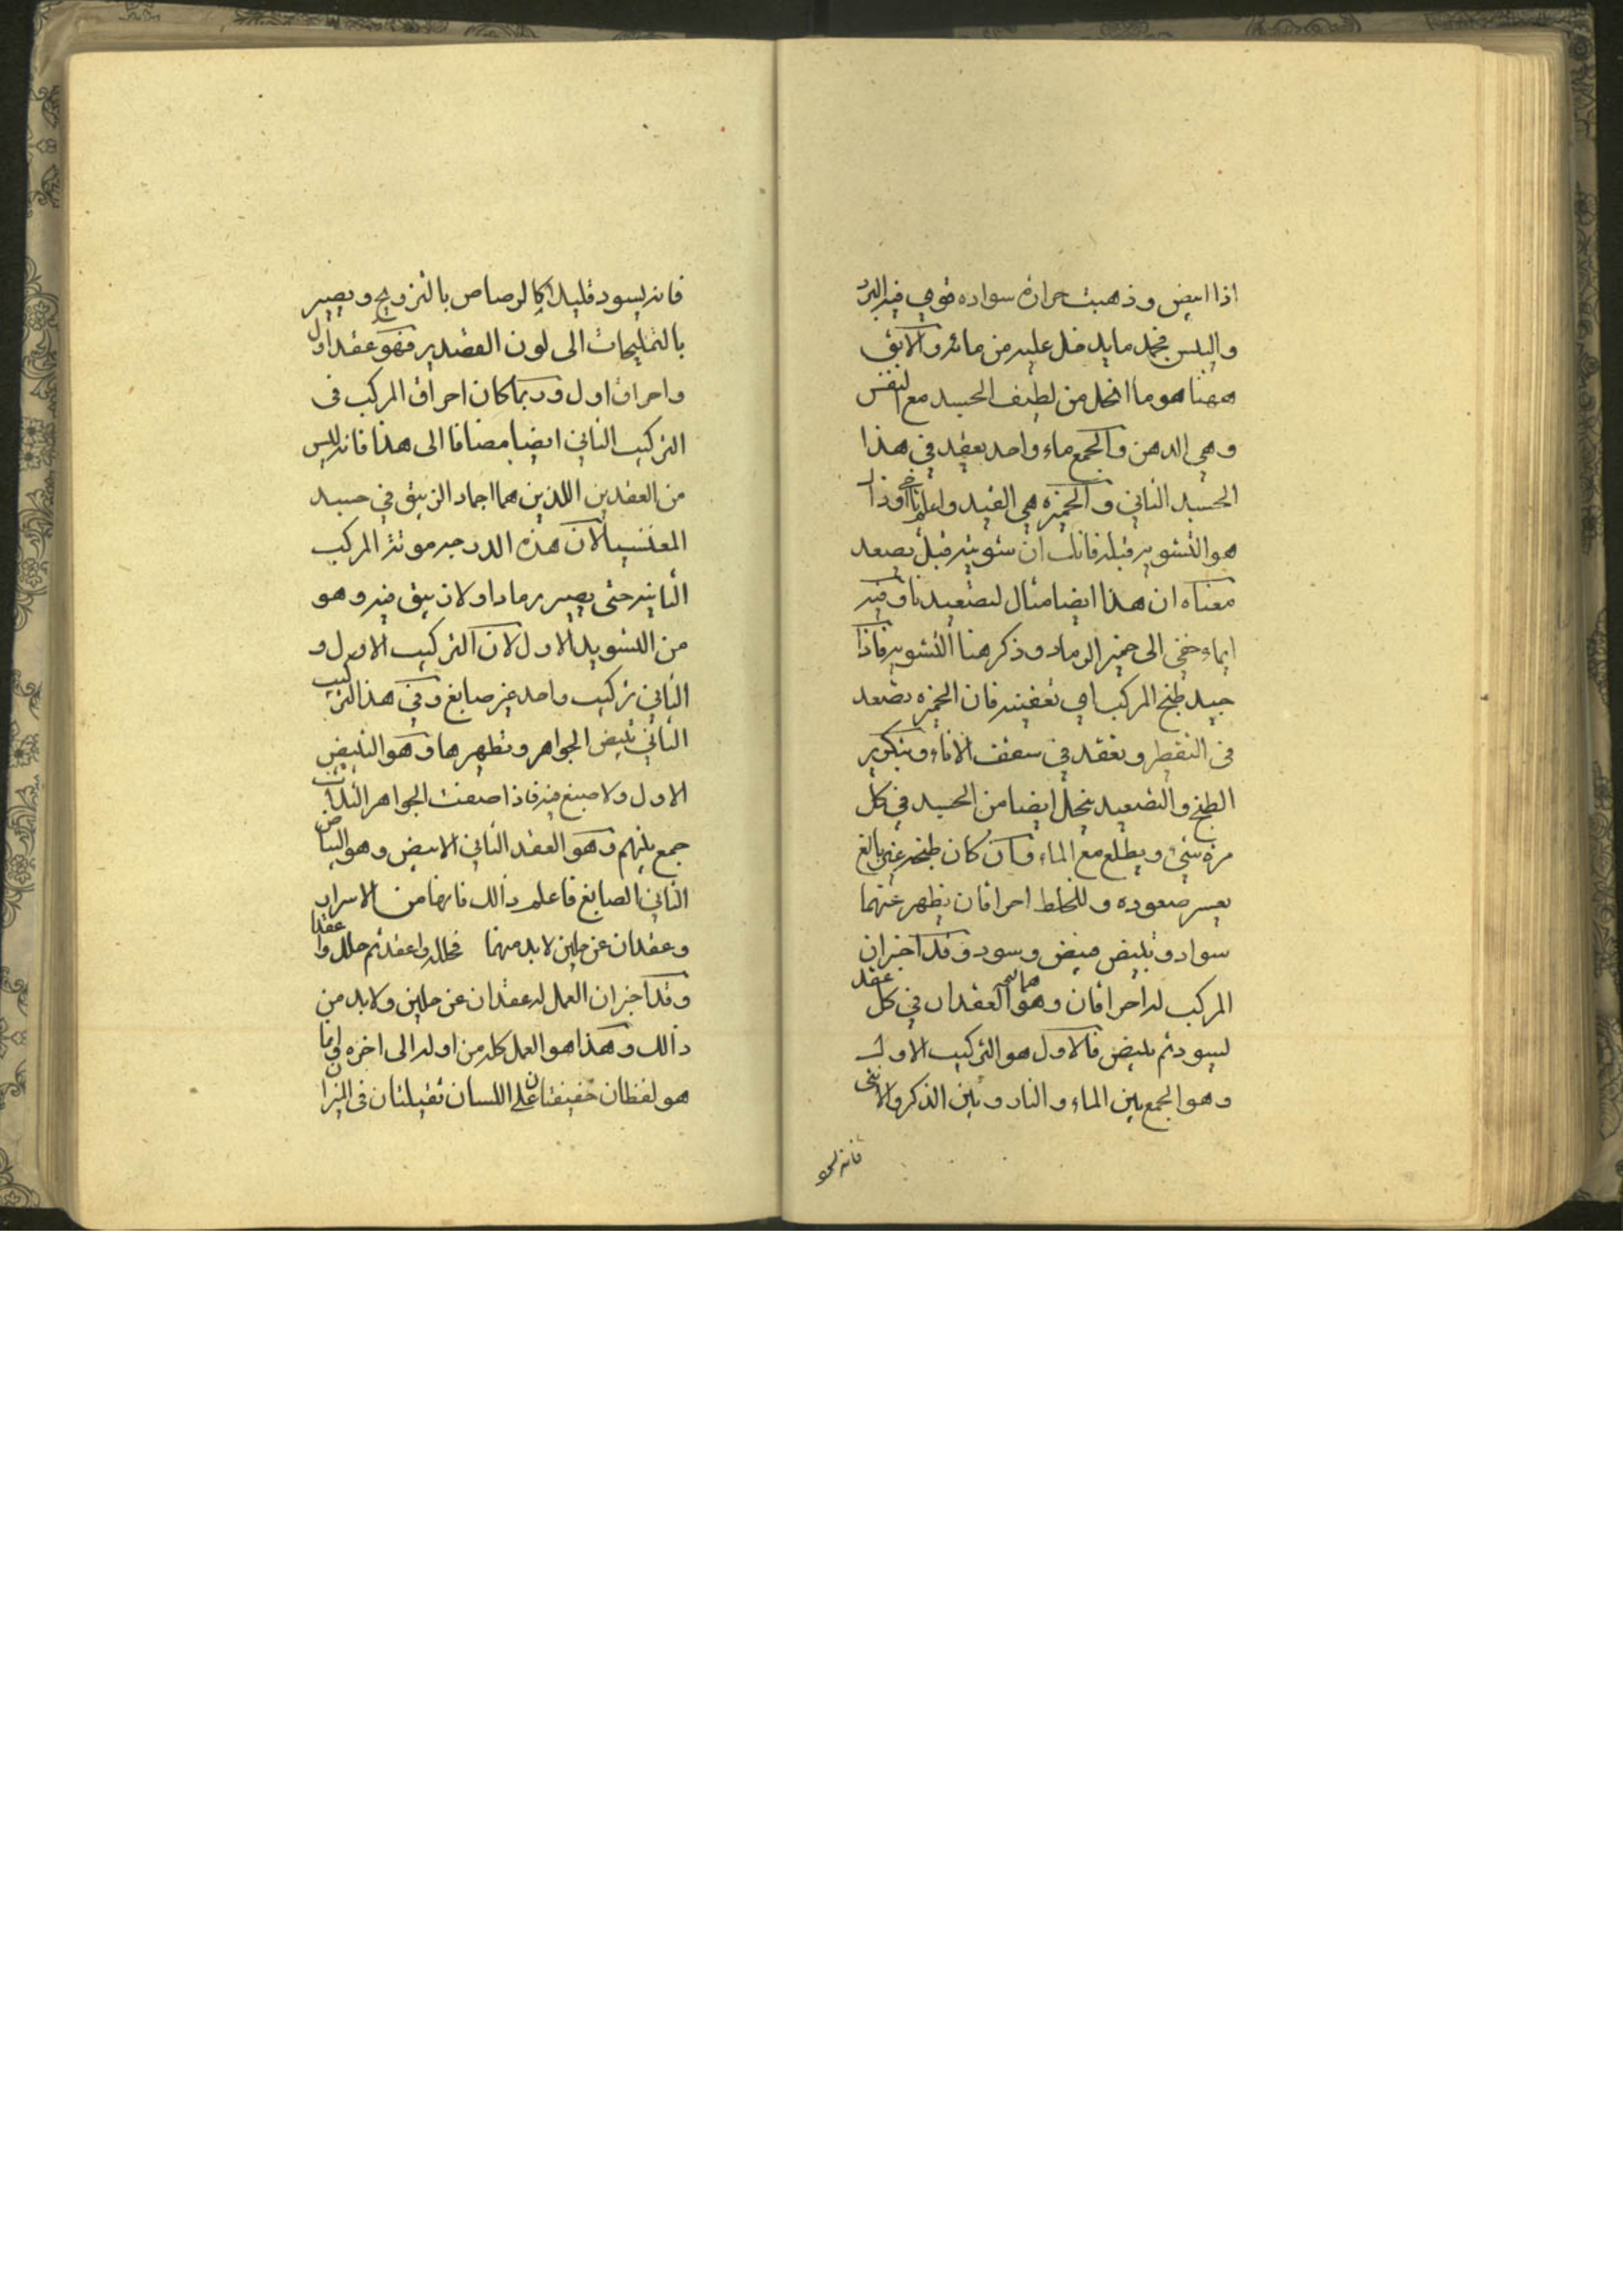 اذا ابيض وذهبت حرارة سواده قوي فيه البرد
واليبس فجمد ما يدخل عليه من مائه والابق
ههنا هو ما انحل من لطيف الجسد مع النفس
وهي الدهن والجمع ماء واحد يعقد في هذا
الجسد الثاني والخميره هي القيد واعلم
هو التشويه قبله فانك ان شويته قبل يصعد
معناه ان هذا ايضا مثال لتصعيدنا وفيه
ايماء خفي الى خمير الرماد وذكر هنا التشويه فاذا
جيد طبخ المركب اي تعفينه فان الخمره تصعد
في التقطير وتعقد في سقف الاناء وبتكرير
الطبخ والتصعيد ينحل ايضا من الجسد في كل
مرة شيء ويطلع مع الماء وان كان طبخه غير بالغ
يعسر صعوده وللخلط احراقان يظهر عنهما
سواد وتبييض مبيض وسود وقد اخبر ان
المركب له احراقان وهما ثم العقدان في كل عقد
ليسود ثم يبيض فالاول هو التركيب الاول
وهو الجمع بين الماء والنار وبين الذكر والانثى
فانه يسود
فانه يسود قليلا كالرصاص بالتزويج ويصير
بالتمليحات الى لون القصدير فهو عقد اول
واحراق اول وربما كان احراق المركب في
التركيب الثاني ايضا مضافا الى هذا فانه ليس
من العقدين اللذين هما اجماد الزيبق في جسد
المغنسيا لان هذه الدرجه موتة المركب
الثانيه حتى يصير رمادا ولان يبق فيه وهو
من التسويد الاول لان التركيب الاول و
الثاني تركيب واحد غير صابغ وفي هذا التركيب
الثاني تبييض الجواهر وتطهيرها وهو التبييض
الاول ولا صبغ فيه فاذا صفت الجواهر الثلاث
جمع بينهم وهو العقد الثاني الابيض وهو البياض
الثاني الصابغ فاعلم ذالك فانها من الاسرار
وعقدان عن حلين لا بد منهما فحلله واعقد ثم حلل واعقدا
وقد اخبر ان العمل له عقدان عن حلين ولا بد من
ذالك وهكذا هو العمل كله من اوله الى اخره وانما
هو لفظان خفيفتان على اللسان ثقيلتان في الميزان